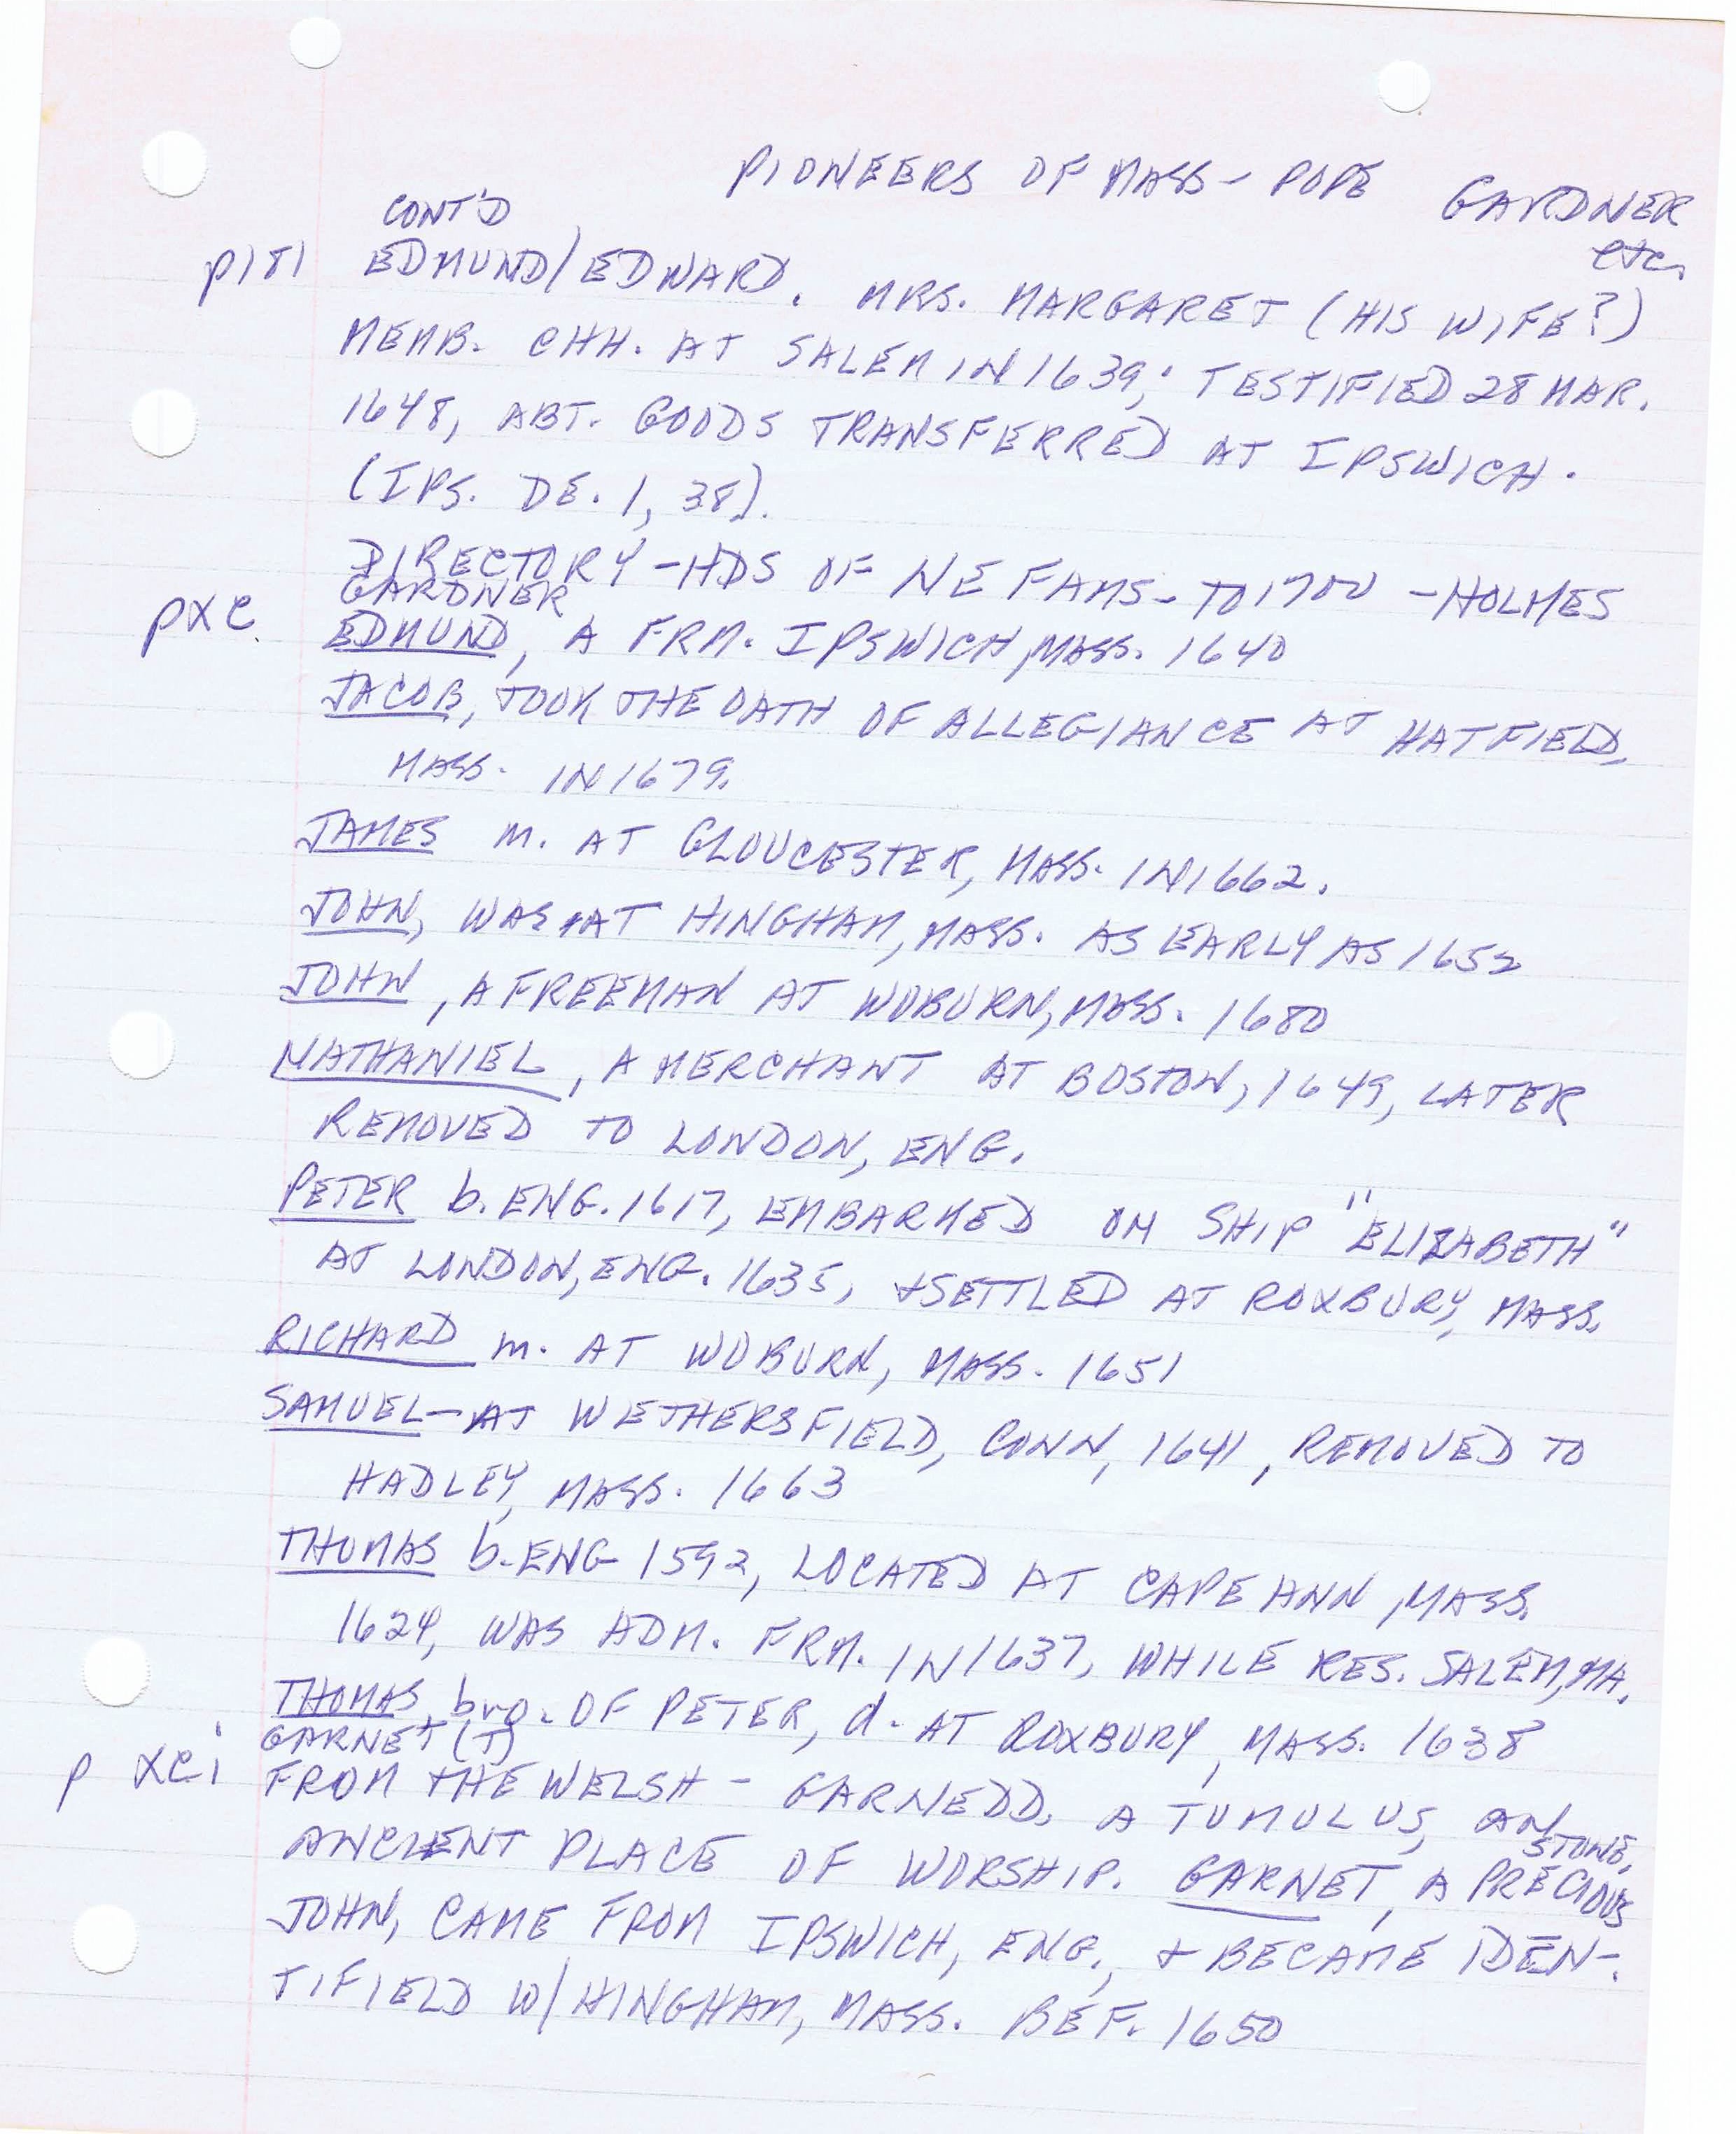 PIONEERS OF MASS - POPE GARDNER
etc.
CONT'D
p181 EDMUND/EDWARD. MRS. MARGARET (HIS WIFE?)
MEMB. CHH. AT SALEM IN 1639; TESTIFIED 28 MAR.
1648, ABT. GOODS TRANSFERRED AT IPSWICH.
(IPS. DE. 1, 38).
DIRECTORY - HDS OF NE FAMS - TO 1700 - HOLMES
GARDNER
pxc EDMUND, A FRM. IPSWICH, MASS. 1640
JACOB, TOOK THE OATH OF ALLEGIANCE AT HATFIELD,
MASS. IN 1679.
JAMES m. AT GLOUCESTER, MASS. IN 1662.
JOHN, WAS AT HINGHAM, MASS. AS EARLY AS 1652
JOHN, A FREEMAN AT WOBURN, MASS. 1680
NATHANIEL, A MERCHANT AT BOSTON, 1649, LATER
REMOVED TO LONDON, ENG.
PETER b. ENG. 1617, EMBARKED ON SHIP "ELIZABETH"
AT LONDON, ENG. 1635, + SETTLED AT ROXBURY, MASS.
RICHARD m. AT WOBURN, MASS. 1651
SAMUEL - AT WETHERSFIELD, CONN, 1641, REMOVED TO
HADLEY, MASS. 1663
THOMAS b. ENG 1592, LOCATED AT CAPE ANN, MASS.
1624, WAS ADM. FRM. IN 1637, WHILE RES. SALEM, MA.
THOMAS, bro. OF PETER, d. AT ROXBURY, MASS. 1638
GARNET (T)
p xci FROM THE WELSH - GARNEDD, A TUMULUS, AN
ANCIENT PLACE OF WORSHIP. GARNET, A PRECIOUS STONE.
JOHN, CAME FROM IPSWICH, ENG., + BECAME IDEN-
TIFIELD W/ HINGHAM, MASS. BEF. 1650